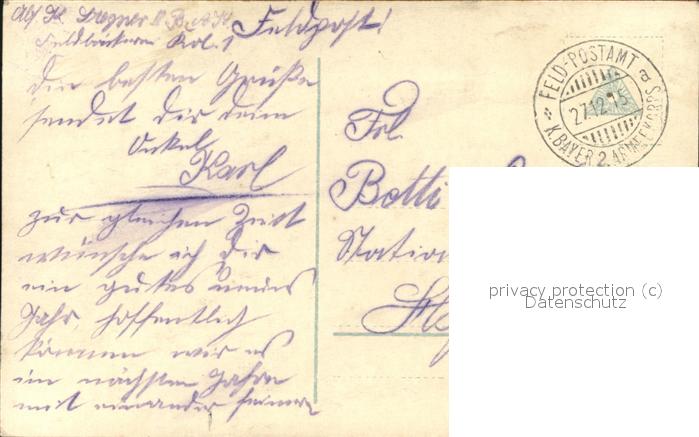 Abs. K.
Feldbäckerei Kol. 1
Feldpost!
FELD-POSTAMT
27.12.15
K.BAYER 2.ARMEEKORPS
a
Die besten Grüße
sendet dir dein
Onkel
Karl
zur gleichen Zeit
wünsche ich Dir
ein gutes neues
Jahr, hoffentlich
können wir es
im nächsten Jahre
mit einander
Frl.
Betti
Station
privacy protection (c)
Datenschutz